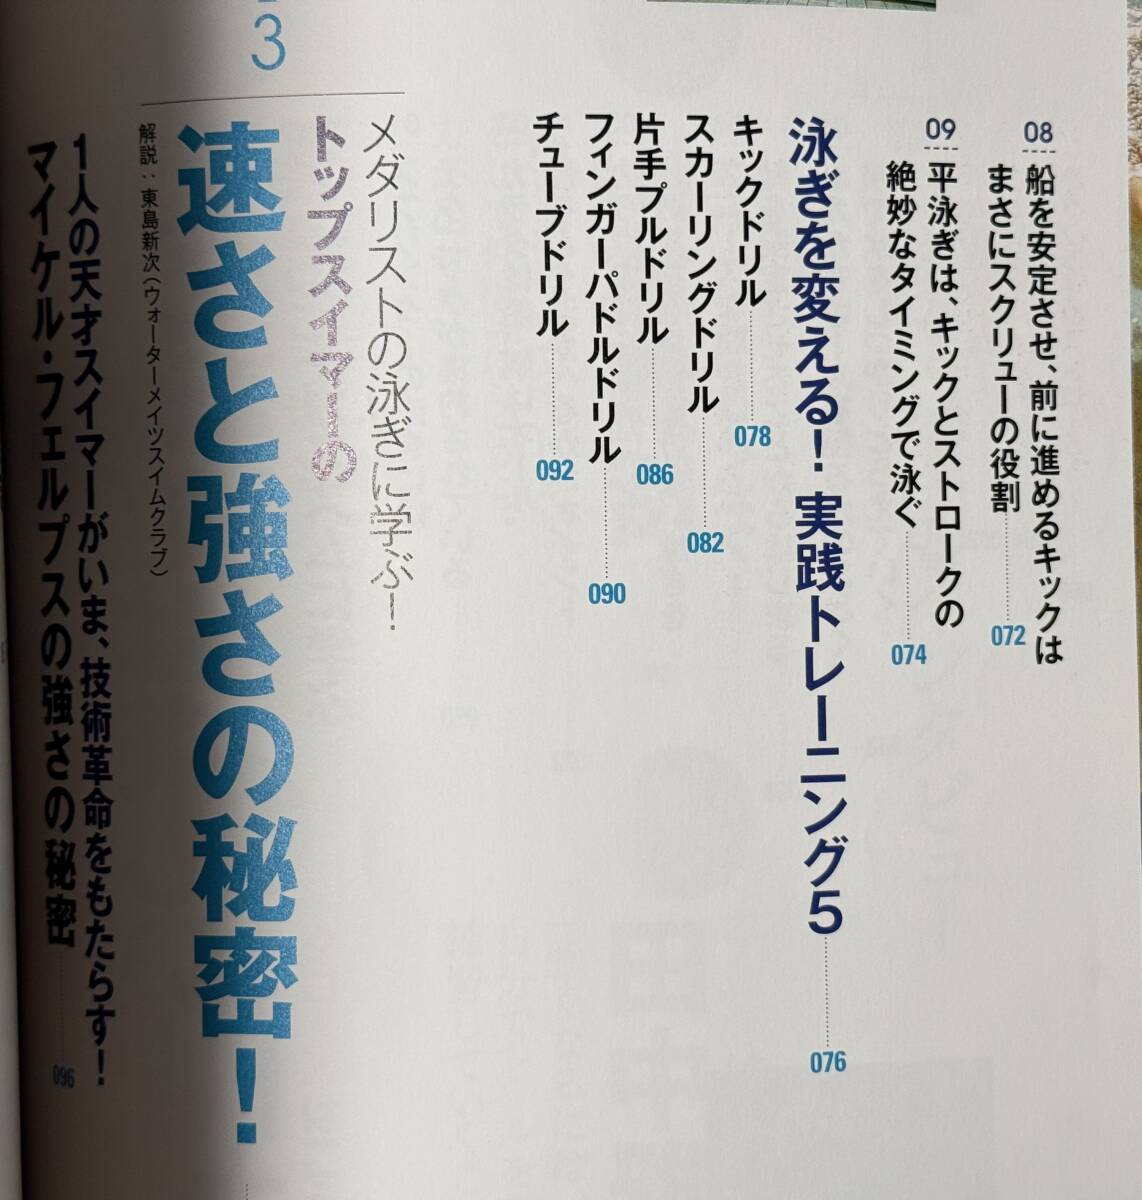 08
船を安定させ、前に進めるキックは
まさにスクリューの役割
072
09
平泳ぎは、キックとストロークの
絶妙なタイミングで泳ぐ
074
泳ぎを変える！ 実践トレーニング5
076
キックドリル
078
スカーリングドリル
082
片手プルドリル
086
フィンガーパドルドリル
090
チューブドリル
092
3
メダリストの泳ぎに学ぶ！
トップスイマーの
速さと強さの秘密！
解説：東島新次（ウォーターメイツスイムクラブ）
1人の天才スイマーがいま、技術革命をもたらす！
マイケル・フェルプスの強さの秘密
096